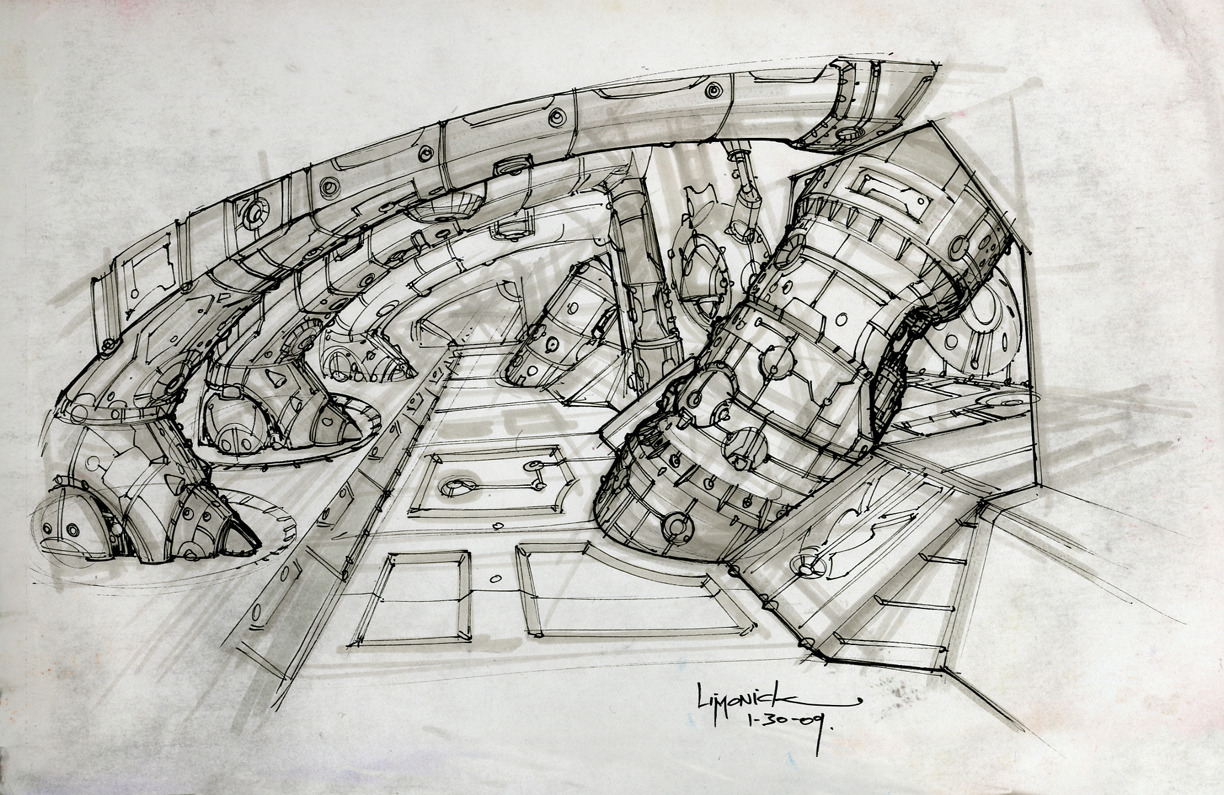 Limonick
1-30-09.